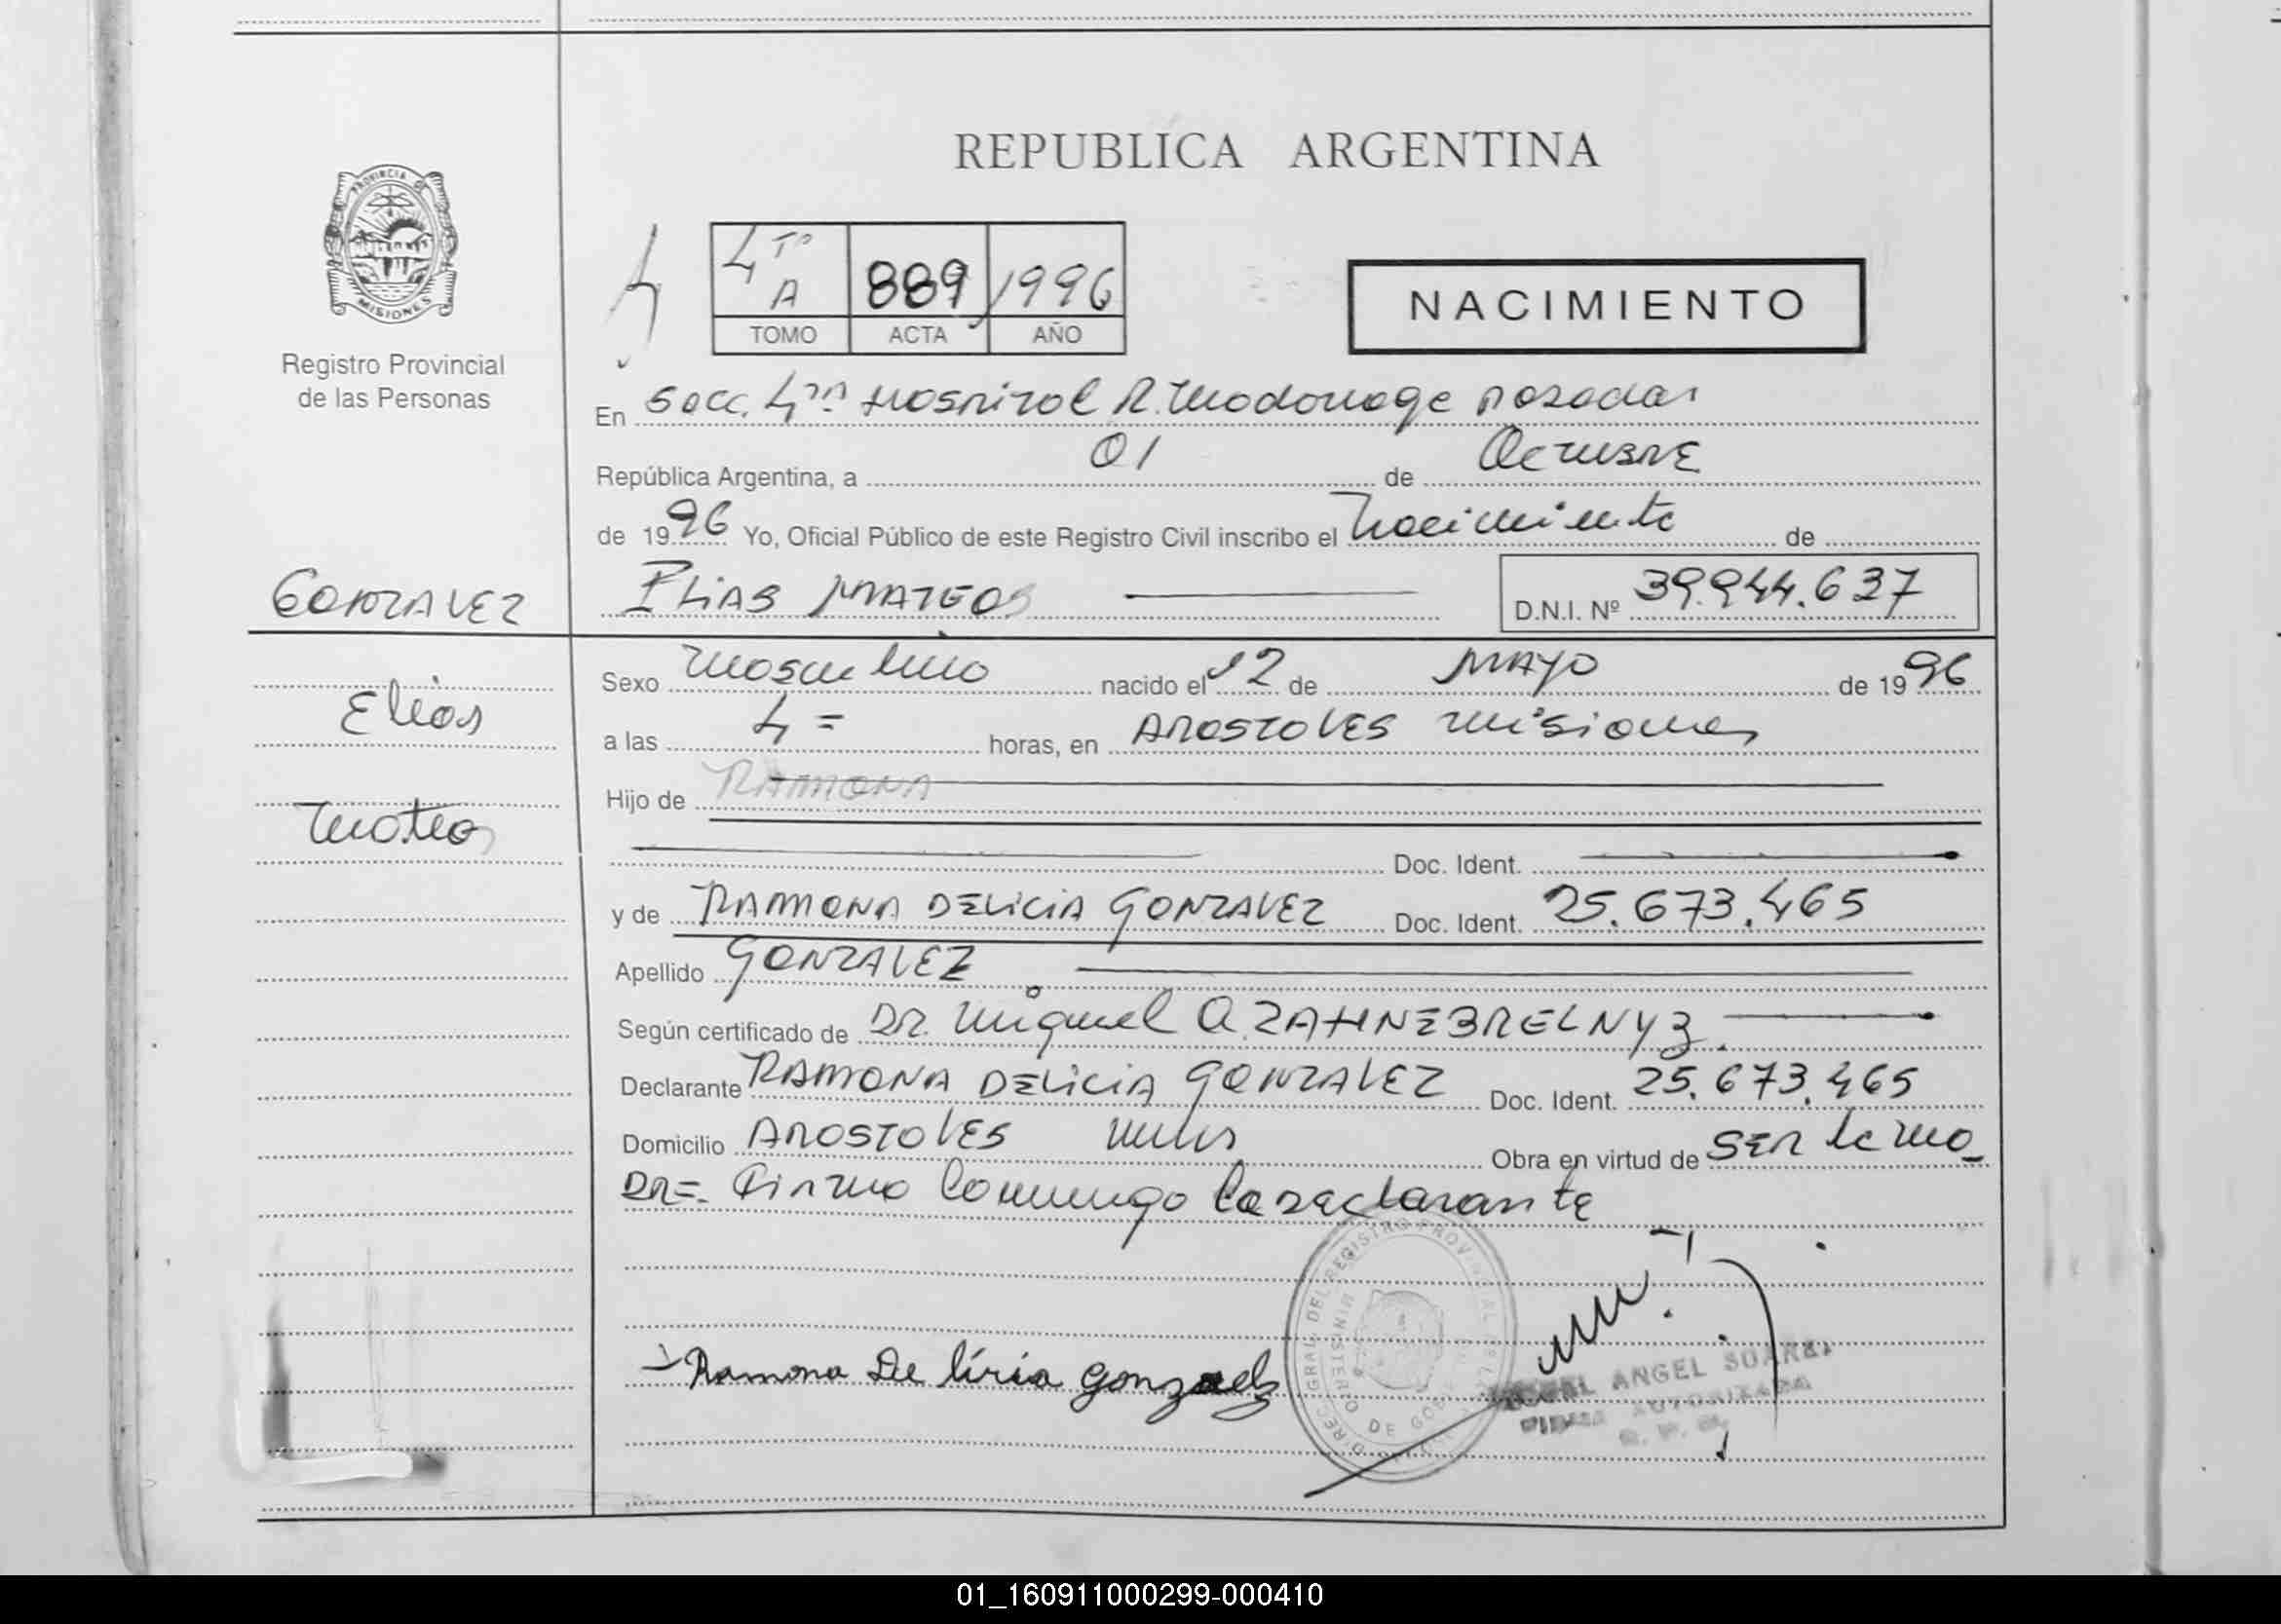 REPUBLICA ARGENTINA
PROVINCIA DE
MISIONES
Registro Provincial
de las Personas
4 4to A 889 1996
TOMO ACTA AÑO
NACIMIENTO
En Secc. 4ta Hospital R. Madariaga Posadas
República Argentina, a 01 de Octubre
de 1996 Yo, Oficial Público de este Registro Civil inscribo el Nacimiento de
GONZALEZ
ELIAS MATEOS D.N.I. Nº 39.944.637
Elias
Mateos
Sexo Masculino nacido el 12 de MAYO de 1996
a las 4= horas, en APOSTOLES Misiones
Hijo de RAMONA
Doc. Ident.
y de RAMONA DELICIA GONZALEZ Doc. Ident. 25.673.465
Apellido GONZALEZ
Según certificado de DR. Miguel A.
Declarante RAMONA DELICIA GONZALEZ Doc. Ident. 25.673.465
Domicilio APOSTOLES Mnes Obra en virtud de SER la ma_
DRE=. Firma Conmigo la declarante
Ramona De licia gonzalez
DIREC. GRAL. DEL REGISTRO PROVINCIAL
MINISTERIO DE GOB
ANGEL SUAREZ
FIRMA AUTORIZADA
01_160911000299-000410